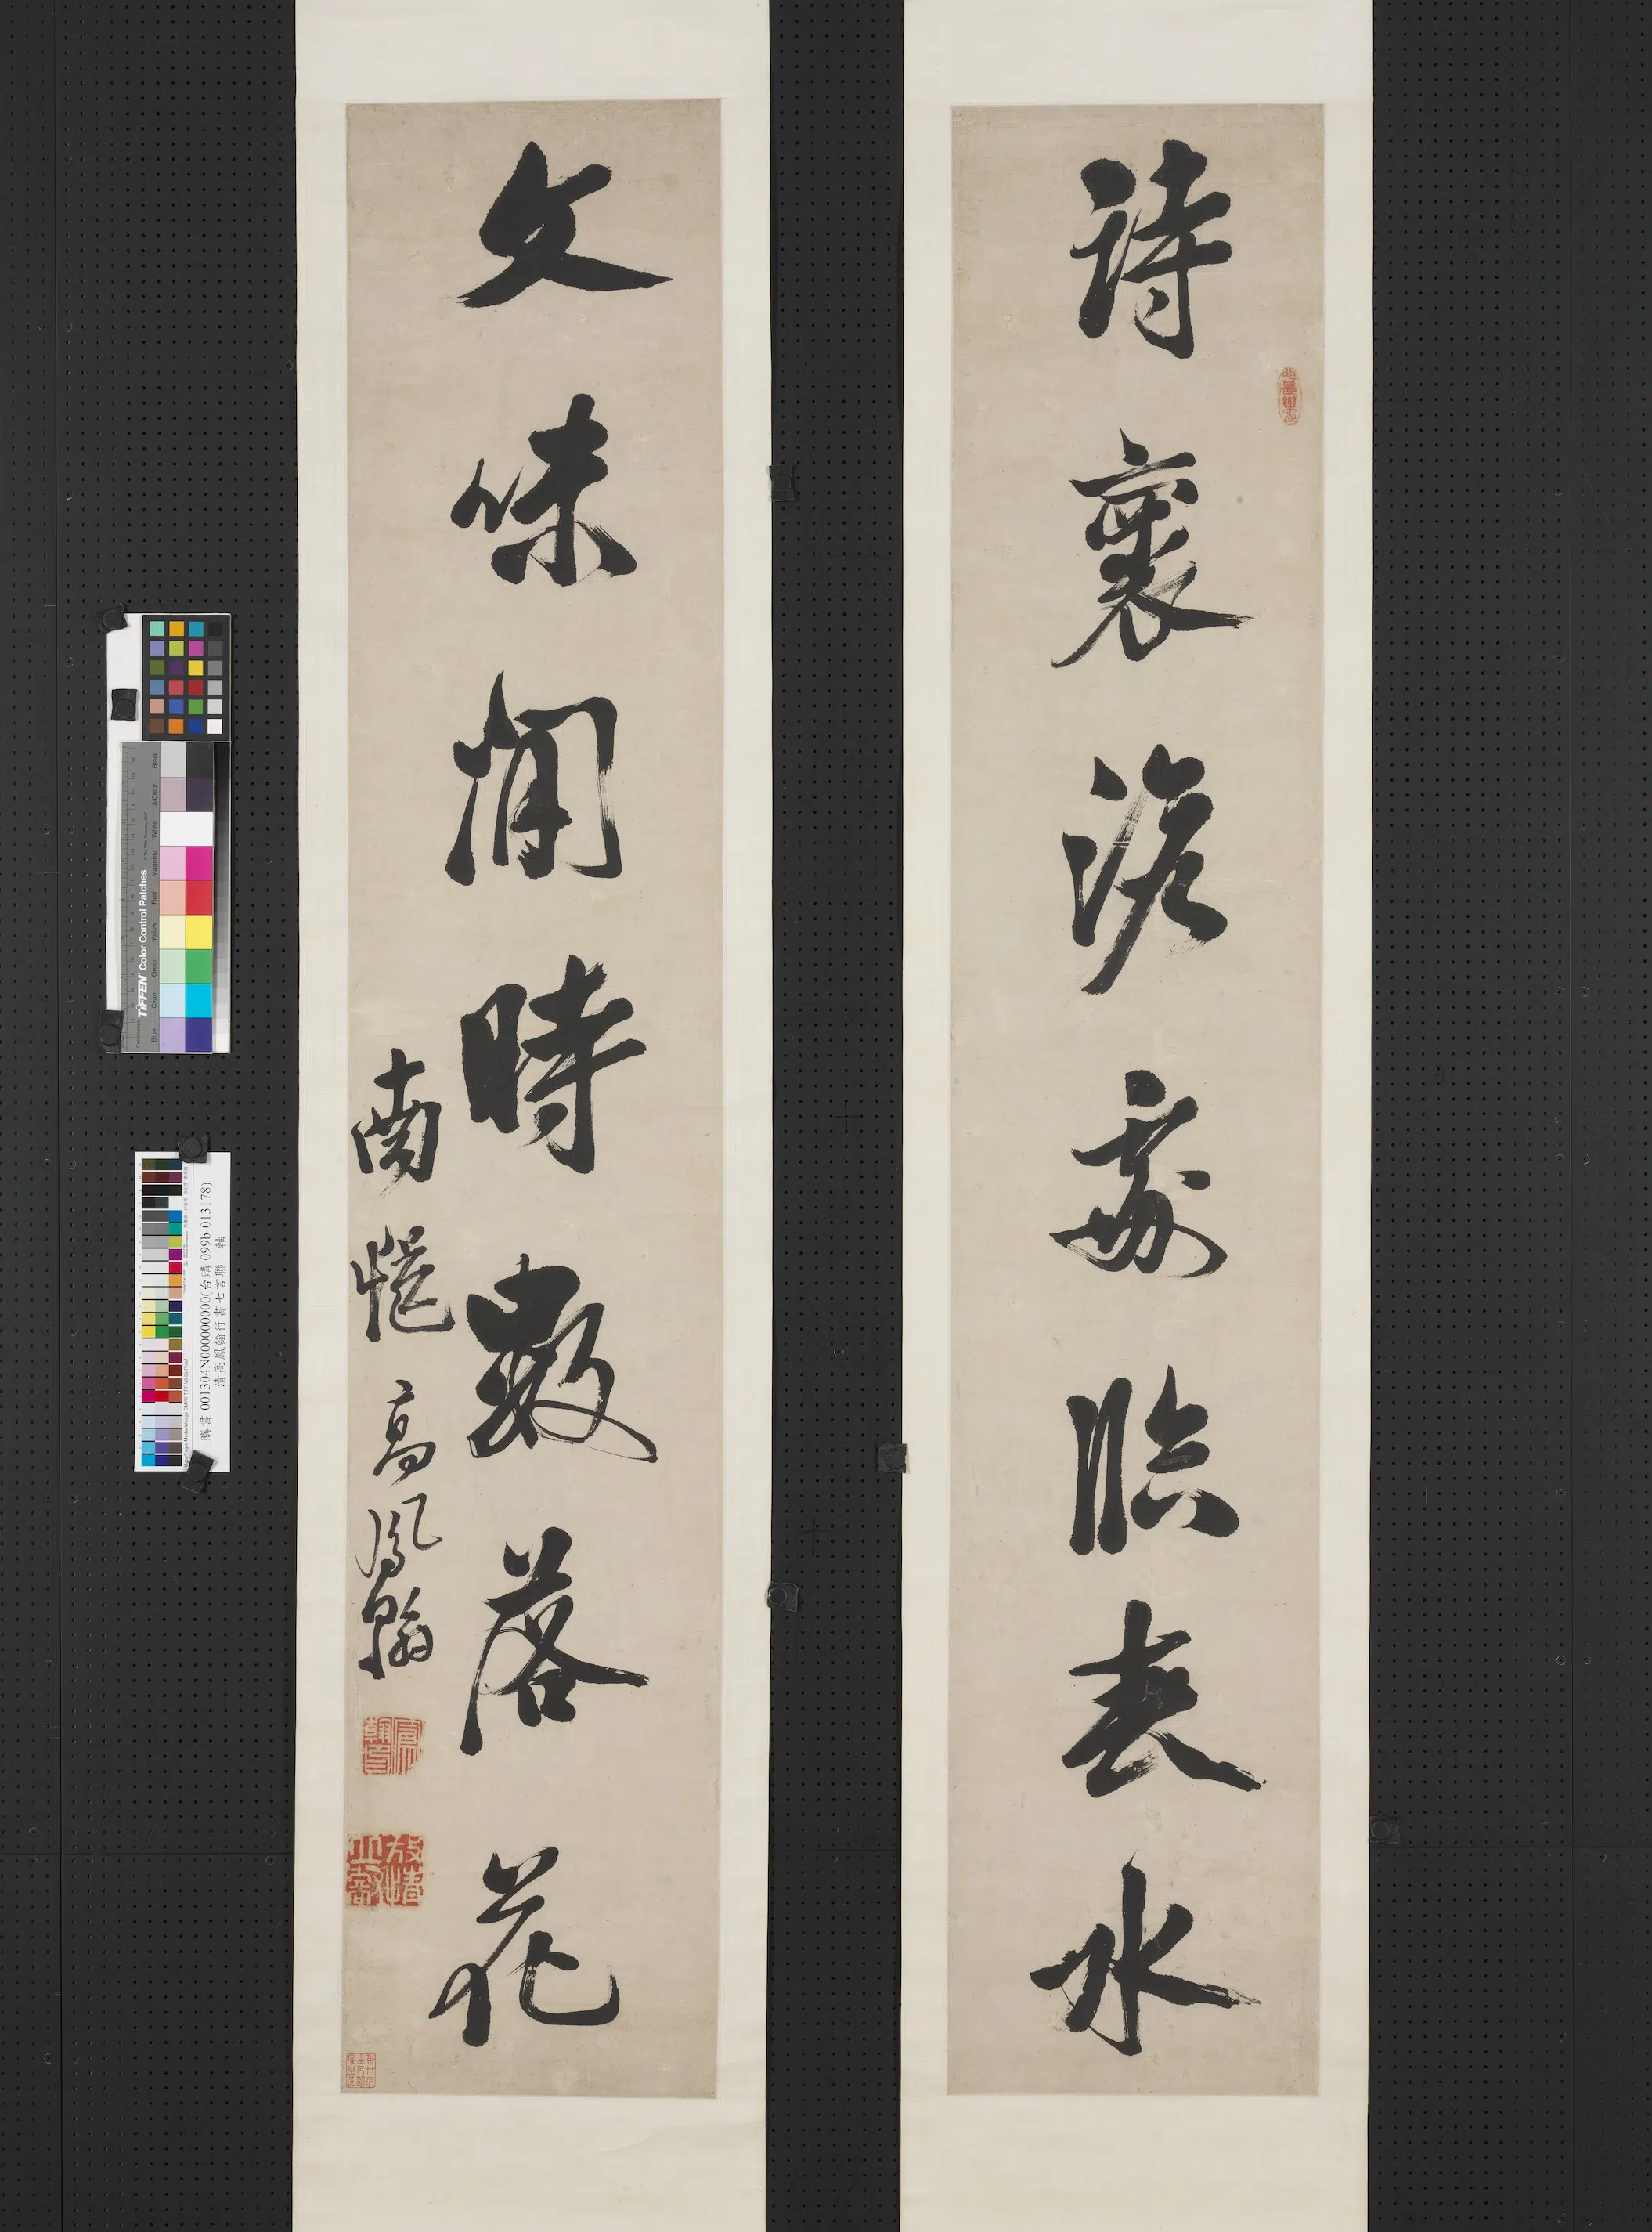 詩褱澹處臨春水
文味閒時數落花
南 高鳳翰
TIFFEN Color Control Patches
Blue Cyan Green Yellow Red Magenta White 3/Color Black
購書 001304N000000000(台購 099b-013178)
清高鳳翰行書七言聯 軸